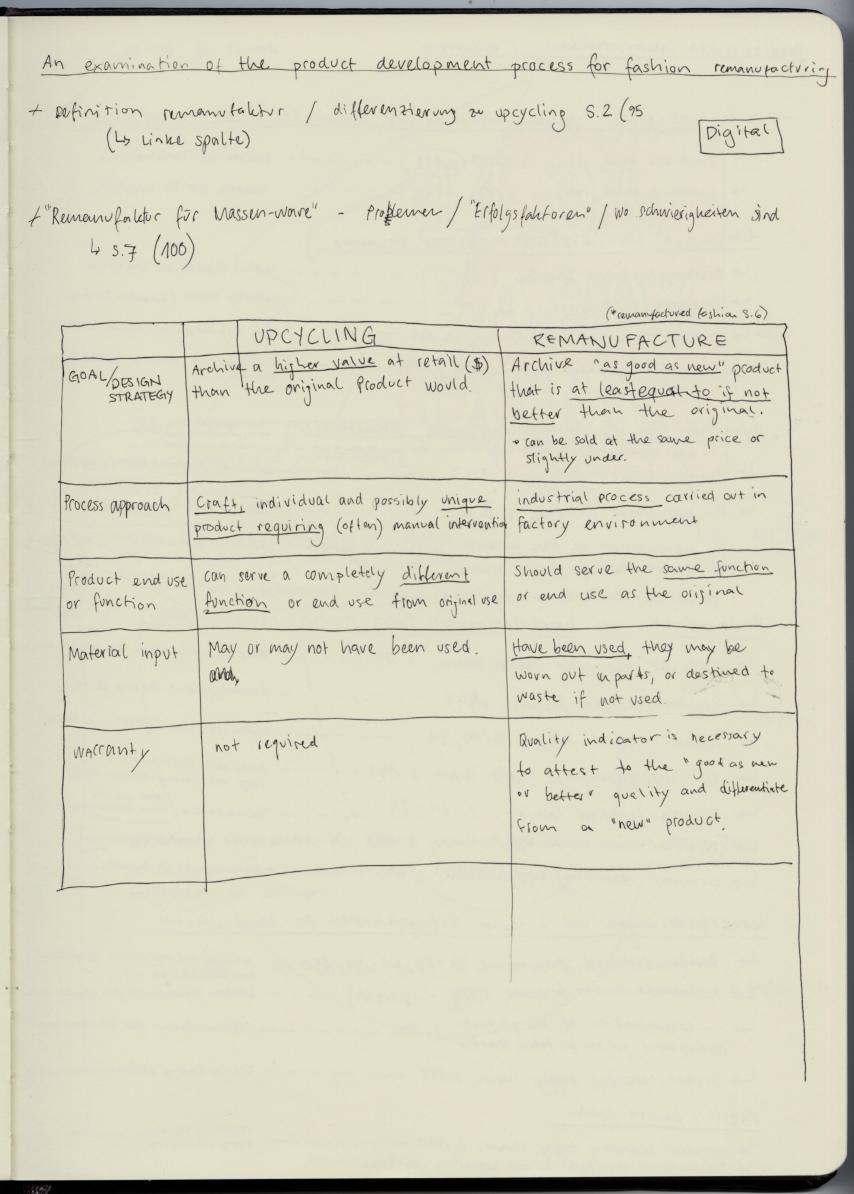 An examination of the product development process for fashion remanufacturing
+ Definition remanufaktur / differenzierung zu upcycling S.2 (95
(↳ Linke spalte)
Digital
+ "Remanufaktur für Massen-ware" - Problemen / "Erfolgsfaktoren" / wo schwierigkeiten sind
↳ S.7 (100)
(*remanufactured fashion S.6)
UPCYCLING
REMANUFACTURE
GOAL/DESIGN
STRATEGY
Archive a higher value at retail ($)
than the original Product would.
Archive "as good as new" product
that is at least equal to if not
better than the original.
• can be sold at the same price or
slightly under.
Process approach
Craft, individual and possibly unique
product requiring (often) manual intervention
industrial process carried out in
factory environment
Product end use
or function
can serve a completely different
function or end use from original use
Should serve the same function
or end use as the original
Material input
May or may not have been used.
Have been used, they may be
worn out in parts, or destined to
waste if not used.
warranty
not required
Quality indicator is necessary
to attest to the "good as new
or better" quality and differentiate
from a "new" product.